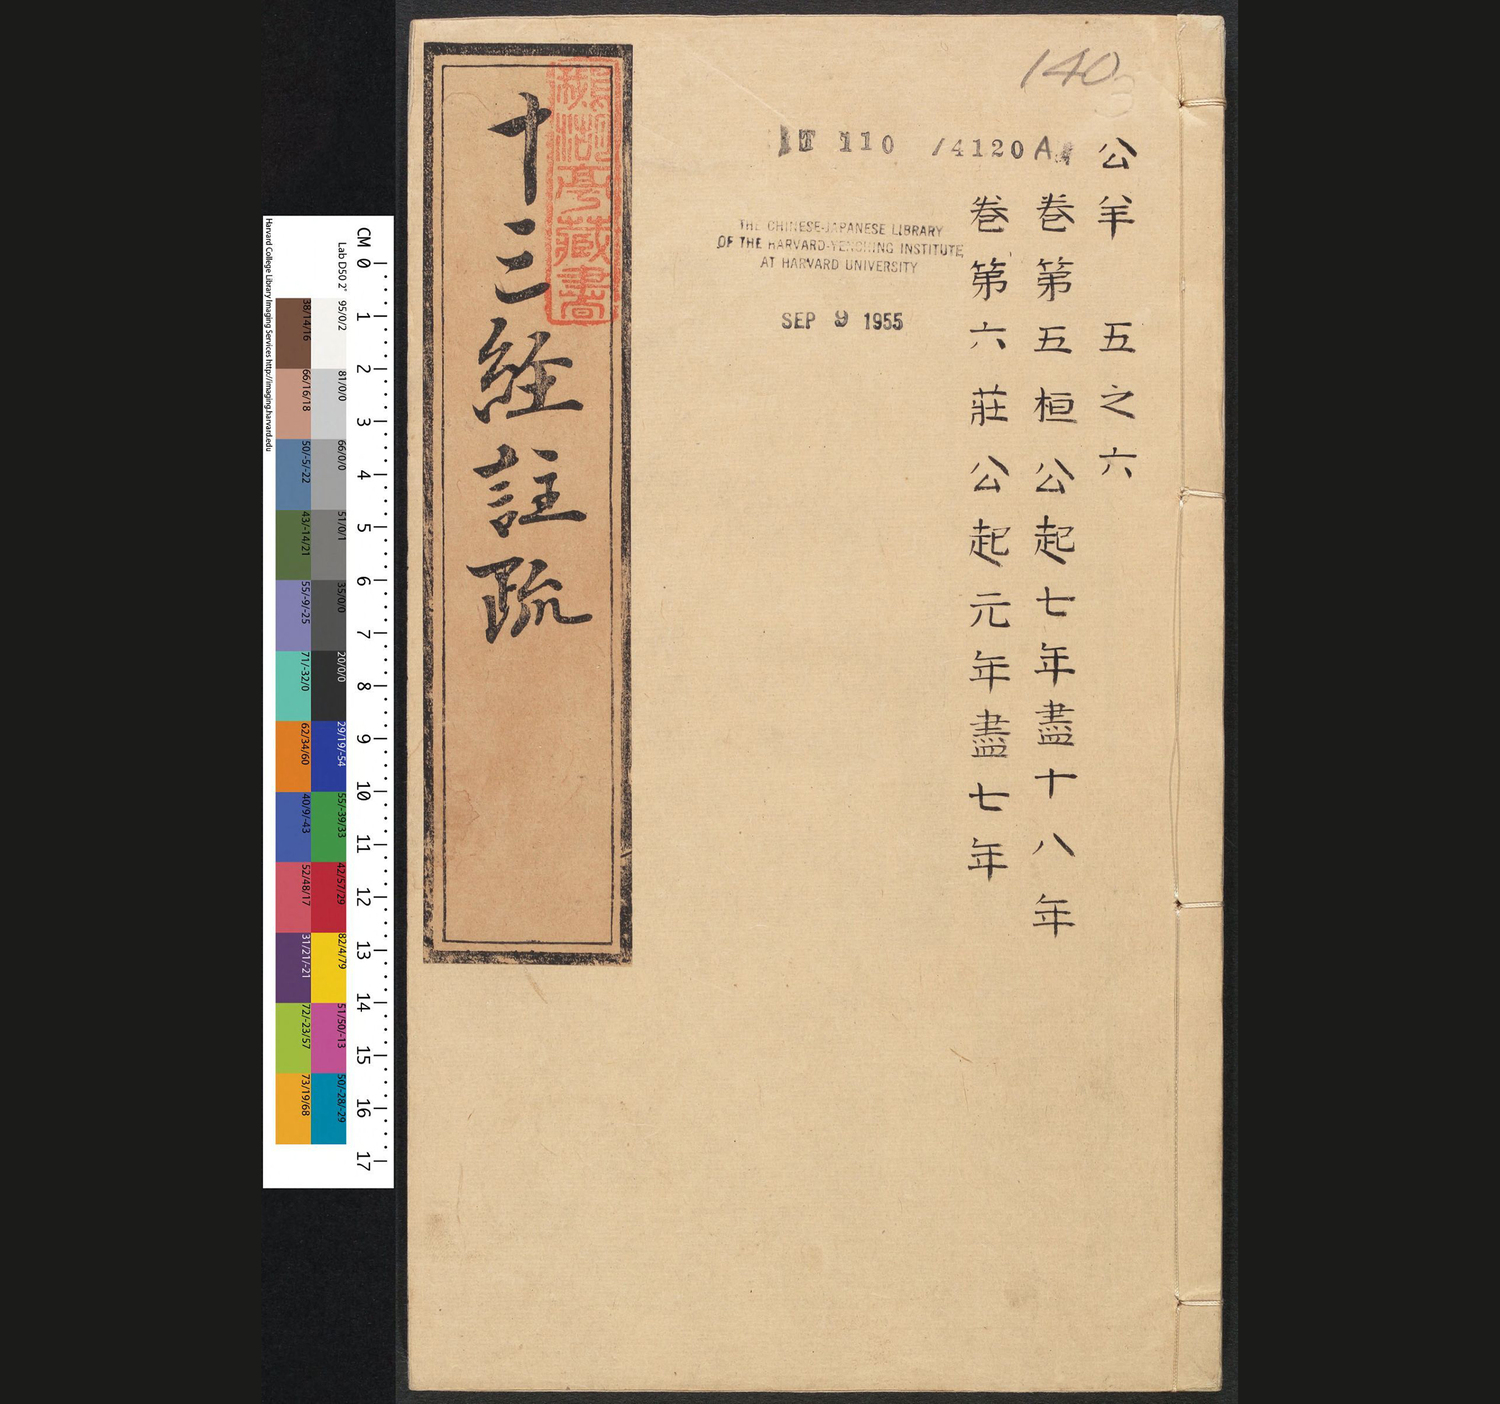 140
公羊 五之六
卷第五桓公起七年盡十八年
卷第六莊公起元年盡七年
T 110 /4120 A
THE CHINESE-JAPANESE LIBRARY
OF THE HARVARD-YENCHING INSTITUTE
AT HARVARD UNIVERSITY
SEP 9 1955
十三經註疏
亭藏書
CM 0 1 2 3 4 5 6 7 8 9 10 11 12 13 14 15 16 17
Lab D50 2°
95/0/2
81/0/0
66/0/0
51/0/1
35/0/0
20/0/0
29/19/-54
55/-39/33
42/57/29
82/4/79
51/50/-13
50/-28/-29
38/14/16
66/16/18
50/-5/-22
43/-14/21
55/-9/-25
71/-32/0
62/34/60
40/9/-43
52/48/17
31/21/-21
72/-23/57
73/19/68
Harvard College Library Imaging Services http://imaging.harvard.edu